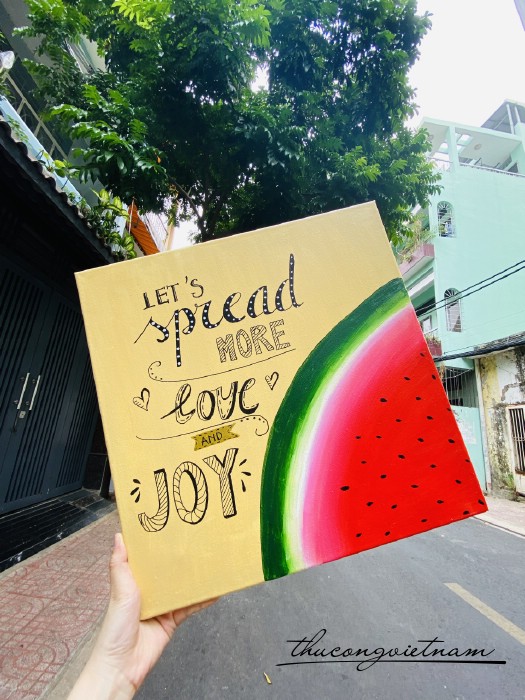 LET'S
spread
MORE
love
AND
JOY
thucongvietnam